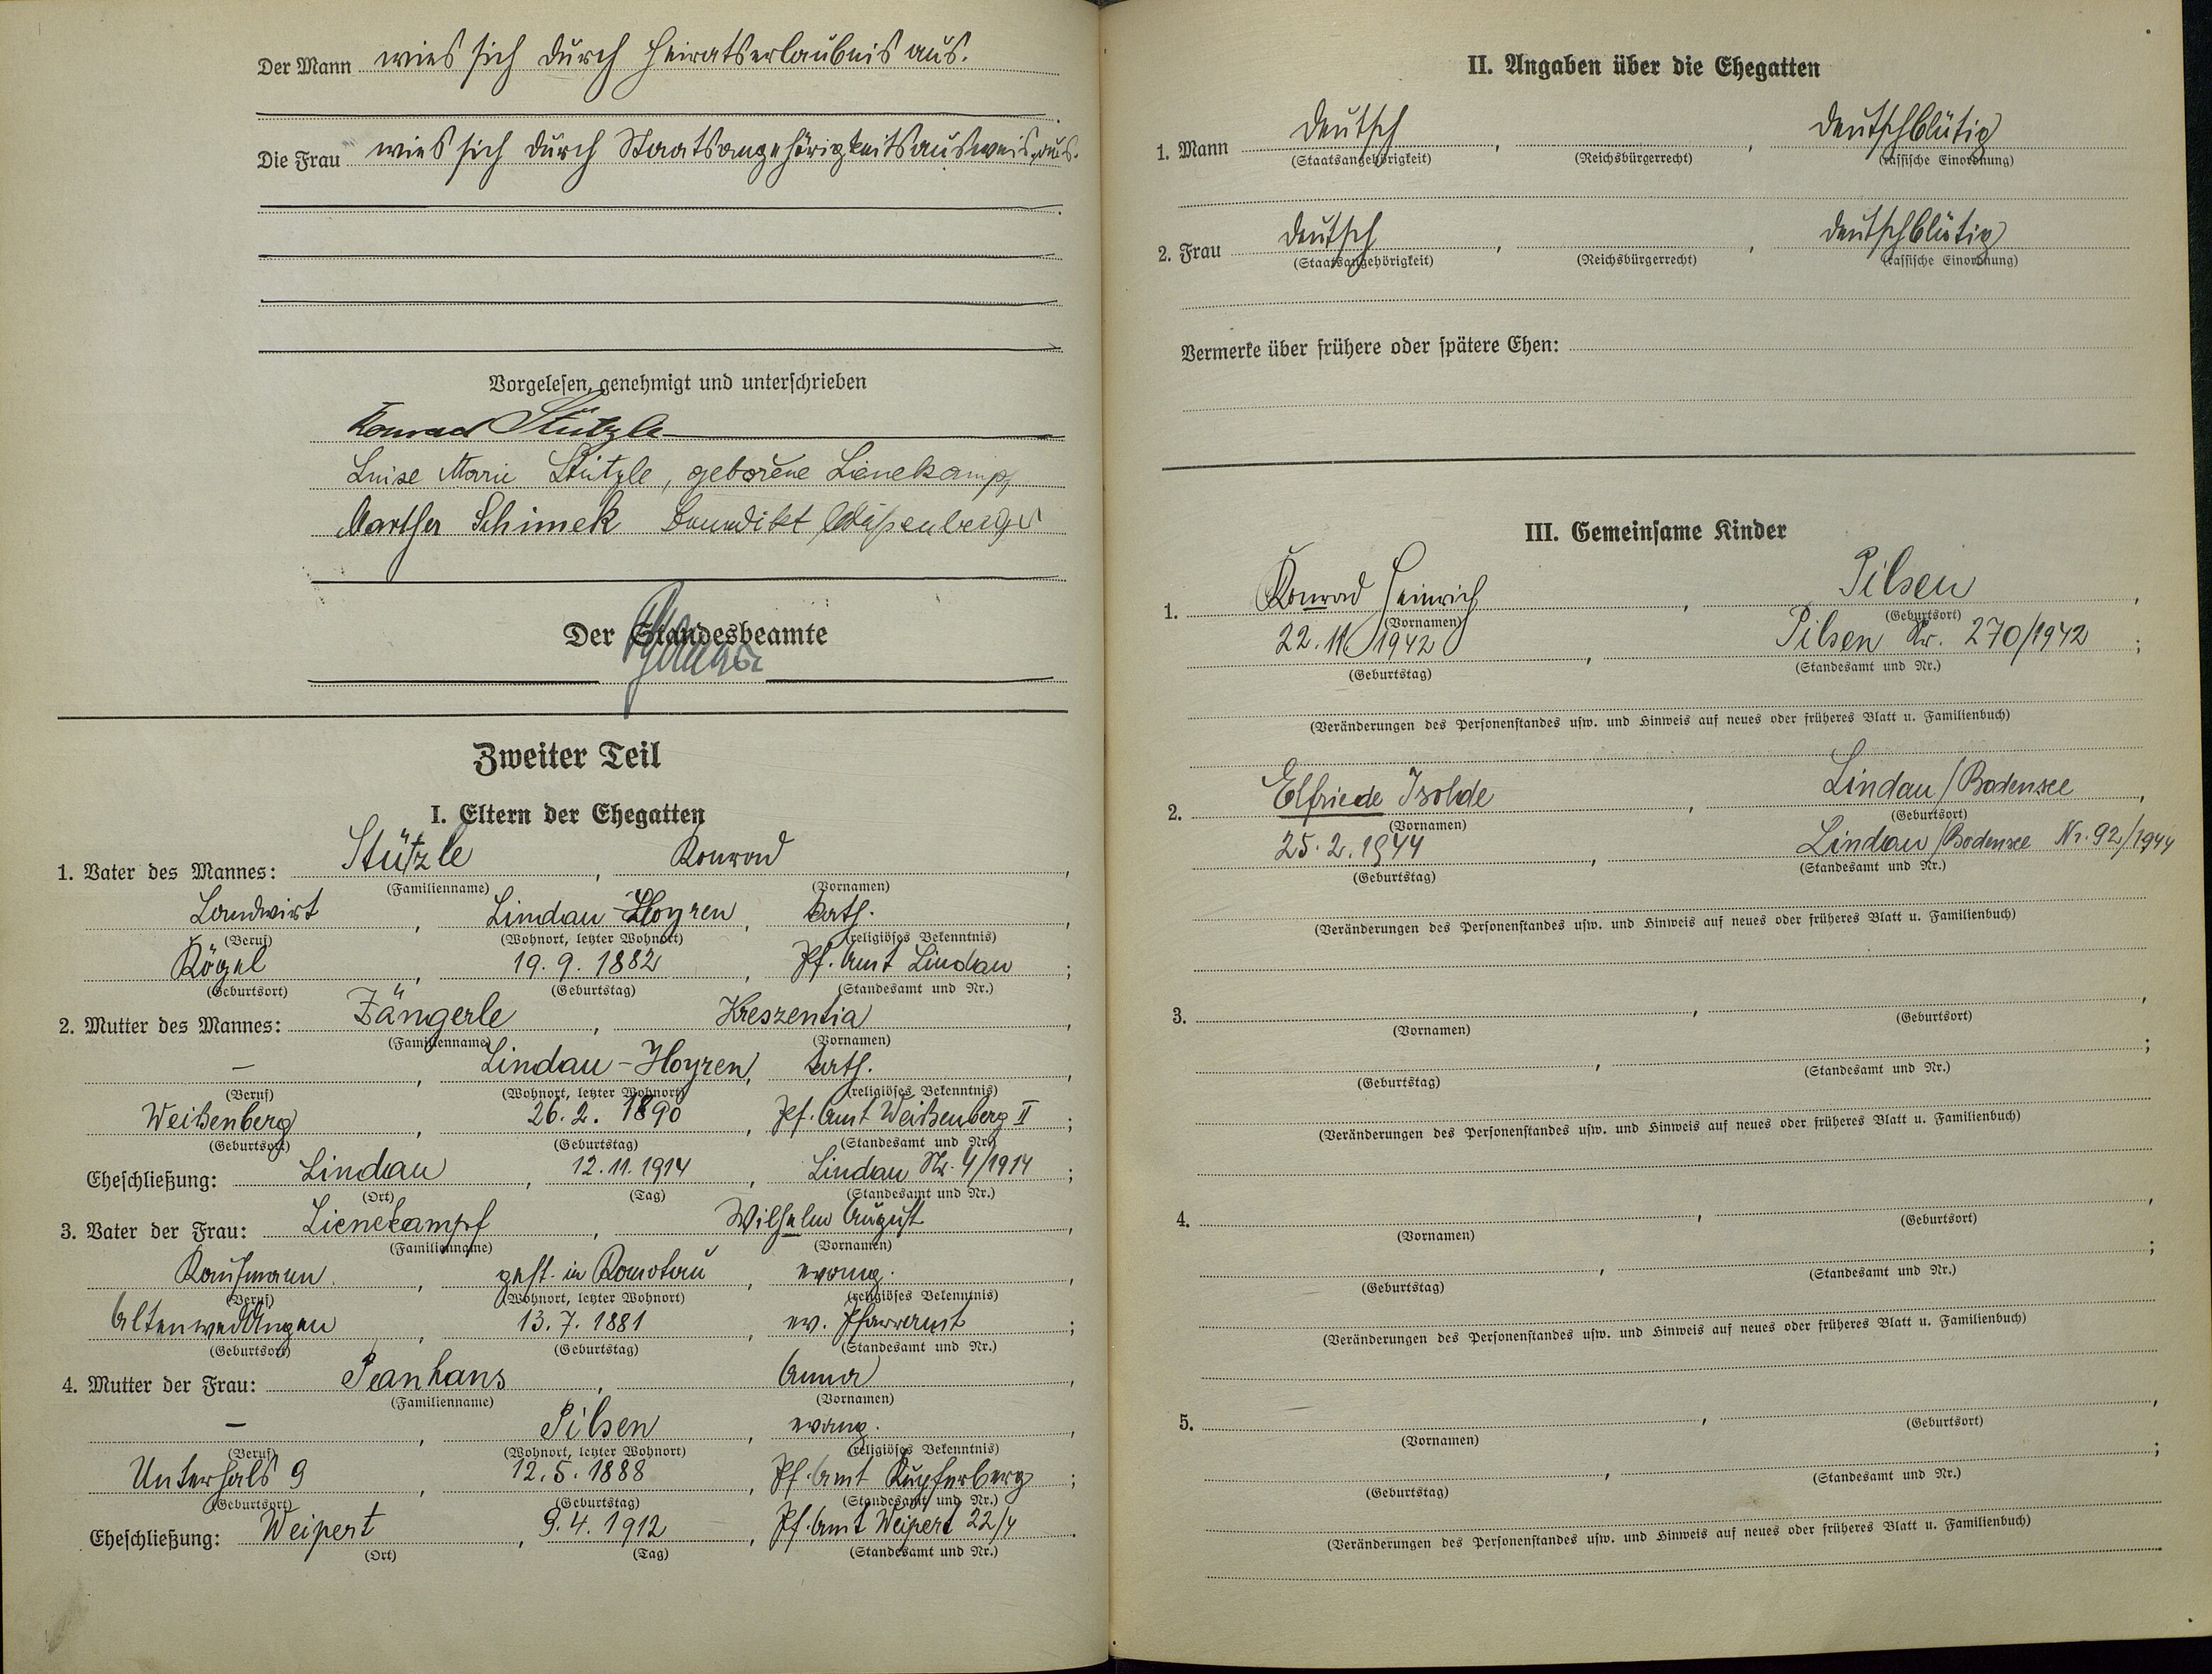 Der Mann wies sich durch Heiratserlaubnis aus.
Die Frau wies sich durch Staatsangehörigkeitsausweis aus.
Vorgelesen, genehmigt und unterschrieben
Konrad Stützle
Luise Marie Stützle, geborene Lienekampf
Martha Schimek Benedikt
Der Standesbeamte
Zweiter Teil
I. Eltern der Ehegatten
1. Vater des Mannes: Stützle, Konrad,
(Familienname) (Vornamen)
Landwirt, Lindau-Hoyren, kath.,
(Beruf) (Wohnort, letzter Wohnort) (religiöses Bekenntnis)
Kögel, 19.9.1882, Pf. Amt Lindau;
(Geburtsort) (Geburtstag) (Standesamt und Nr.)
2. Mutter des Mannes: Zängerle, Kreszentia,
(Familienname) (Vornamen)
–, Lindau-Hoyren, kath.,
(Beruf) (Wohnort, letzter Wohnort) (religiöses Bekenntnis)
Weißenberg, 26.2.1890, Pf. Amt Weißenberg II;
(Geburtsort) (Geburtstag) (Standesamt und Nr.)
Eheschließung: Lindau, 12.11.1914, Lindau Nr. 4/1914;
(Ort) (Tag) (Standesamt und Nr.)
3. Vater der Frau: Lienekampf, Wilhelm August,
(Familienname) (Vornamen)
Kaufmann, gest. in Komotau, evang.,
(Beruf) (Wohnort, letzter Wohnort) (religiöses Bekenntnis)
Altenweddingen, 13.7.1881, ev. Pfarramt;
(Geburtsort) (Geburtstag) (Standesamt und Nr.)
4. Mutter der Frau: Peanhans, Anna,
(Familienname) (Vornamen)
–, Pilsen, evang.,
(Beruf) (Wohnort, letzter Wohnort) (religiöses Bekenntnis)
Unterhals 9, 12.5.1888, Pf. Amt Kupferberg;
(Geburtsort) (Geburtstag) (Standesamt und Nr.)
Eheschließung: Weipert, 9.4.1912, Pf. Amt Weipert 22/4.
(Ort) (Tag) (Standesamt und Nr.)
II. Angaben über die Ehegatten
1. Mann deutsch, , deutschblütig
(Staatsangehörigkeit) (Reichsbürgerrecht) (rassische Einordnung)
2. Frau deutsch, , deutschblütig
(Staatsangehörigkeit) (Reichsbürgerrecht) (rassische Einordnung)
Vermerke über frühere oder spätere Ehen:
III. Gemeinsame Kinder
1. Konrad Heinrich, Pilsen,
(Vornamen) (Geburtsort)
22.11.1942, Pilsen Nr. 270/1942;
(Geburtstag) (Standesamt und Nr.)
(Veränderungen des Personenstandes usw. und Hinweis auf neues oder früheres Blatt u. Familienbuch)
2. Elfriede Isolde, Lindau/Bodensee,
(Vornamen) (Geburtsort)
25.2.1944, Lindau/Bodensee Nr. 92/1944
(Geburtstag) (Standesamt und Nr.)
(Veränderungen des Personenstandes usw. und Hinweis auf neues oder früheres Blatt u. Familienbuch)
3. , ,
(Vornamen) (Geburtsort)
, ;
(Geburtstag) (Standesamt und Nr.)
(Veränderungen des Personenstandes usw. und Hinweis auf neues oder früheres Blatt u. Familienbuch)
4. , ,
(Vornamen) (Geburtsort)
, ;
(Geburtstag) (Standesamt und Nr.)
(Veränderungen des Personenstandes usw. und Hinweis auf neues oder früheres Blatt u. Familienbuch)
5. , ,
(Vornamen) (Geburtsort)
, ;
(Geburtstag) (Standesamt und Nr.)
(Veränderungen des Personenstandes usw. und Hinweis auf neues oder früheres Blatt u. Familienbuch)